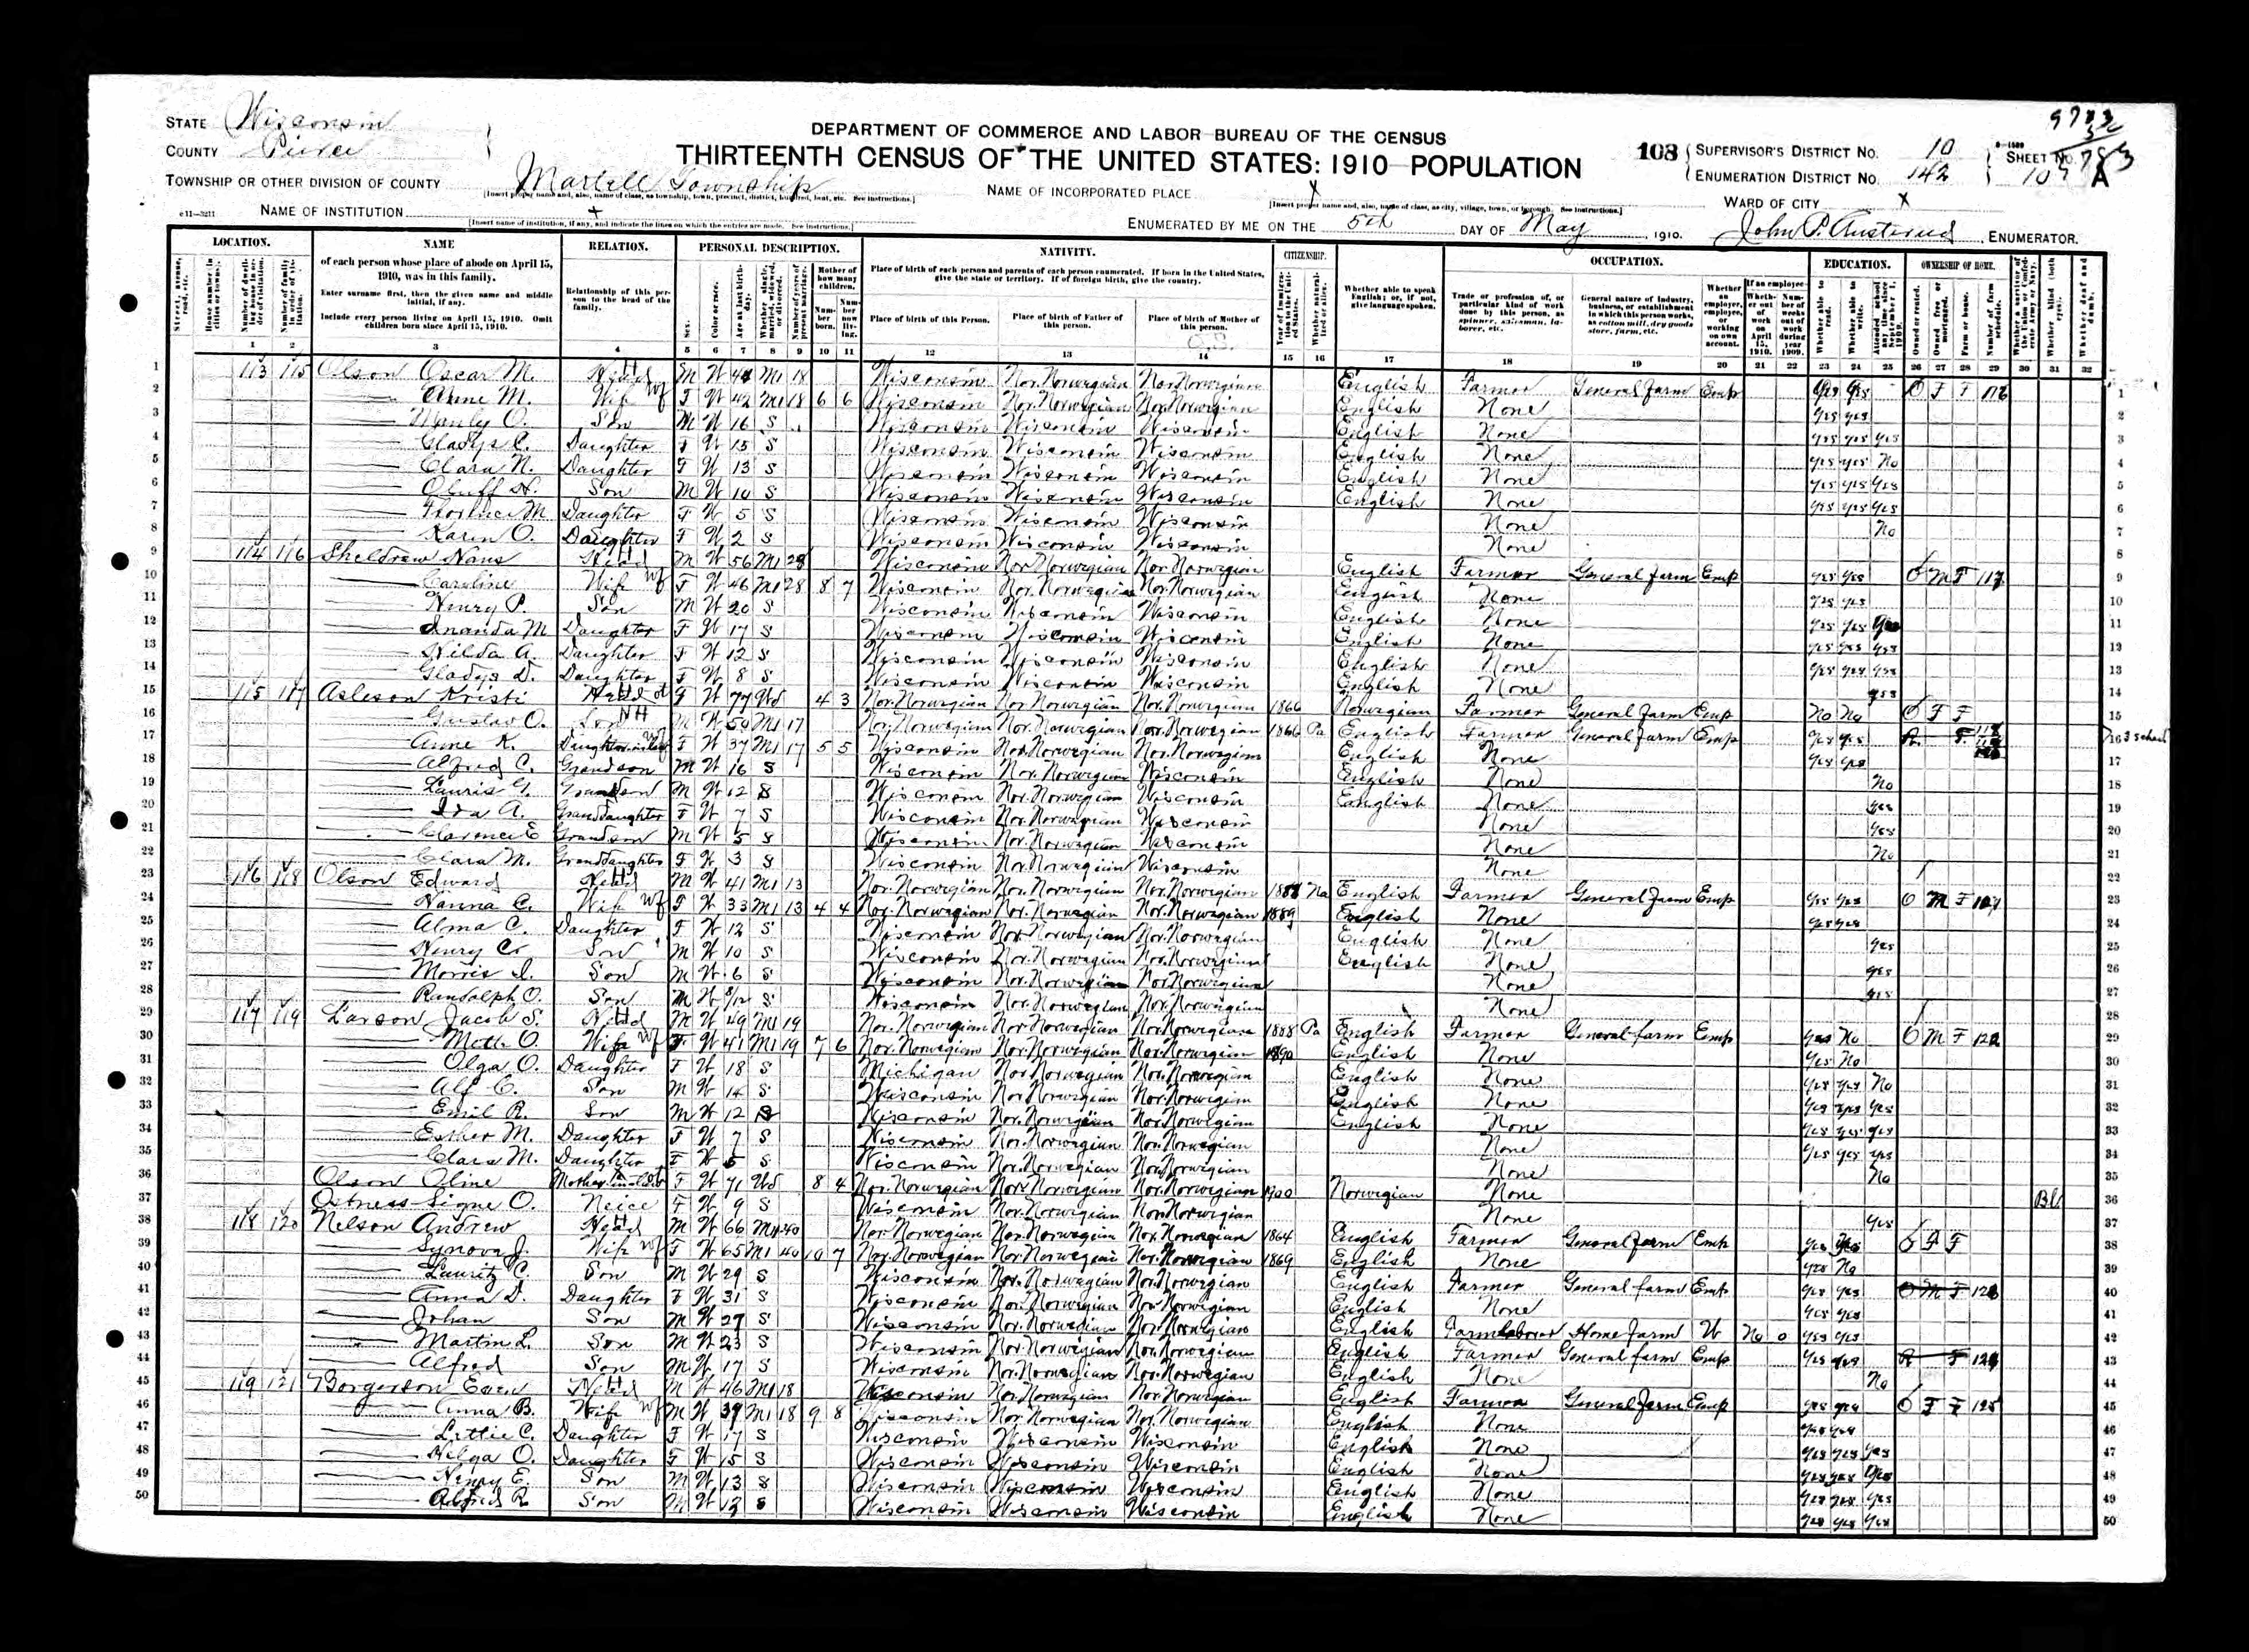 STATE Wisconsin
COUNTY Pierce
DEPARTMENT OF COMMERCE AND LABOR-BUREAU OF THE CENSUS
THIRTEENTH CENSUS OF THE UNITED STATES: 1910 POPULATION
103 SUPERVISOR'S DISTRICT No. 10 SHEET No.
ENUMERATION DISTRICT No. 142 10 A
TOWNSHIP OR OTHER DIVISION OF COUNTY Martell Township NAME OF INCORPORATED PLACE X
NAME OF INSTITUTION X ENUMERATED BY ME ON THE 5th DAY OF May, 1910. WARD OF CITY X
John P. ENUMERATOR.
LOCATION. NAME RELATION. PERSONAL DESCRIPTION. NATIVITY. CITIZENSHIP. OCCUPATION. EDUCATION. OWNERSHIP OF HOME.
of each person whose place of abode on April 15, 1910, was in this family.
Enter surname first, then the given name and middle initial, if any.
Include every person living on April 15, 1910. Omit children born since April 15, 1910.
Relationship of this person to the head of the family.
Place of birth of each person and parents of each person enumerated. If born in the United States, give the state or territory. If of foreign birth, give the country.
Place of birth of this Person. Place of birth of Father of this person. Place of birth of Mother of this person.
Whether able to speak English; or, if not, give language spoken.
1 2 3 4 5 6 7 8 9 10 11 12 13 14 15 16 17 18 19 20 21 22 23 24 25 26 27 28 29 30 31 32
1 113 115 Olson Oscar M. Head M W M1 18 Wisconsin Nor. Norwegian Nor. Norwegian English Farmer General farm Emp yes yes O F F 116
2 Anne M. Wife F W 42 M1 18 6 6 Wisconsin Nor. Norwegian Nor. Norwegian English None yes yes
3 Manly O. Son M W 16 S Wisconsin Wisconsin Wisconsin English None yes yes yes
4 Gladys C. Daughter F W 15 S Wisconsin Wisconsin Wisconsin English None yes yes No
5 Clara N. Daughter F W 13 S Wisconsin Wisconsin Wisconsin English None yes yes yes
6 Oluff H. Son M W 10 S Wisconsin Wisconsin Wisconsin English None yes yes yes
7 Florence M Daughter F W 5 S Wisconsin Wisconsin Wisconsin None No
8 Karin O. Daughter F W 2 S Wisconsin Wisconsin Wisconsin None
9 114 116 Sheldrew Hans Head M W 56 M1 28 Wisconsin Nor. Norwegian Nor. Norwegian English Farmer General farm Emp yes yes O M F 117
10 Caroline Wife F W 46 M1 28 8 7 Wisconsin Nor. Norwegian Nor. Norwegian English None yes yes
11 Henry P. Son M W 20 S Wisconsin Wisconsin Wisconsin English None yes yes
12 Ananda M Daughter F W 17 S Wisconsin Wisconsin Wisconsin English None yes yes yes
13 Hilda A. Daughter F W 12 S Wisconsin Wisconsin Wisconsin English None yes yes yes
14 Gladys D. Daughter F W 8 S Wisconsin Wisconsin Wisconsin English None yes
15 115 117 Asleson Kristi Head F W 77 Wd 4 3 Nor. Norwegian Nor. Norwegian Nor. Norwegian 1866 Norwegian Farmer General farm Emp No No O F F
16 Gustav O. Son M W 50 M1 17 Nor. Norwegian Nor. Norwegian Nor. Norwegian 1866 Pa English Farmer General farm Emp yes yes
17 Anne K. Daughter in law F W 37 M1 17 5 5 Wisconsin Nor. Norwegian Nor. Norwegian English None yes yes
18 Alfred C. Grandson M W 16 S Wisconsin Nor. Norwegian Wisconsin English None No
19 Lauris G. Grandson M W 12 S Wisconsin Nor. Norwegian Wisconsin English None yes
20 Ida A. Granddaughter F W 7 S Wisconsin Nor. Norwegian Wisconsin None yes
21 Clarence E Grandson M W 5 S Wisconsin Nor. Norwegian Wisconsin None No
22 Clara M. Granddaughter F W 3 S Wisconsin Nor. Norwegian Wisconsin None
23 116 118 Olson Edward Head M W 41 M1 13 Nor. Norwegian Nor. Norwegian Nor. Norwegian 1888 Na English Farmer General farm Emp yes yes O M F 121
24 Hanna C. Wife F W 33 M1 13 4 4 Nor. Norwegian Nor. Norwegian Nor. Norwegian 1889 English None yes yes
25 Alma C. Daughter F W 12 S Wisconsin Nor. Norwegian Nor. Norwegian English None yes
26 Henry C. Son M W 10 S Wisconsin Nor. Norwegian Nor. Norwegian English None yes
27 Morris I. Son M W 6 S Wisconsin Nor. Norwegian Nor. Norwegian None yes
28 Randolph O. Son M W 8/12 S Wisconsin Nor. Norwegian Nor. Norwegian None
29 117 119 Larson Jacob S. Head M W 49 M1 19 Nor. Norwegian Nor. Norwegian Nor. Norwegian 1888 Pa English Farmer General farm Emp yes No O M F 122
30 O. Wife F W 41 M1 19 7 6 Nor. Norwegian Nor. Norwegian Nor. Norwegian 1890 English None yes No
31 Olga O. Daughter F W 18 S Michigan Nor. Norwegian Nor. Norwegian English None yes yes No
32 Alf C. Son M W 14 S Wisconsin Nor. Norwegian Nor. Norwegian English None yes yes yes
33 Emil R. Son M W 12 S Wisconsin Nor. Norwegian Nor. Norwegian English None yes yes yes
34 Esther M. Daughter F W 7 S Wisconsin Nor. Norwegian Nor. Norwegian None yes yes yes
35 Clara M. Daughter F W 5 S Wisconsin Nor. Norwegian Nor. Norwegian None No
36 Olson Oline Mother in law F W 71 Wd 8 4 Nor. Norwegian Nor. Norwegian Nor. Norwegian 1900 Norwegian None Bl
37 Ostness Signe O. Neice F W 9 S Wisconsin Nor. Norwegian Nor. Norwegian None yes
38 118 120 Nelson Andrew Head M W 66 M1 40 Nor. Norwegian Nor. Norwegian Nor. Norwegian 1864 English Farmer General farm Emp yes yes O F F
39 Synova J. Wife F W 65 M1 40 10 7 Nor. Norwegian Nor. Norwegian Nor. Norwegian 1869 English None yes No
40 Lauritz C. Son M W 29 S Wisconsin Nor. Norwegian Nor. Norwegian English Farmer General farm Emp yes yes O M F 123
41 Anna D. Daughter F W 31 S Wisconsin Nor. Norwegian Nor. Norwegian English None yes yes
42 Johan Son M W 27 S Wisconsin Nor. Norwegian Nor. Norwegian English Farm laborer Home farm W No 0 yes yes
43 Martin L. Son M W 23 S Wisconsin Nor. Norwegian Nor. Norwegian English Farmer General farm Emp yes yes R F 124
44 Alfred Son M W 17 S Wisconsin Nor. Norwegian Nor. Norwegian English None No
45 119 121 Borgerson Even Head M W 46 M1 18 Wisconsin Nor. Norwegian Nor. Norwegian English Farmer General farm Emp yes yes O F F 125
46 Anna B. Wife M W 39 M1 18 9 8 Wisconsin Nor. Norwegian Nor. Norwegian English None yes yes
47 Lettie C. Daughter F W 17 S Wisconsin Wisconsin Wisconsin English None yes yes yes
48 Helga O. Daughter F W 15 S Wisconsin Wisconsin Wisconsin English None yes yes yes
49 Henry E. Son M W 13 S Wisconsin Wisconsin Wisconsin English None yes yes yes
50 Alfred R. Son M W 12 S Wisconsin Wisconsin Wisconsin English None yes yes yes